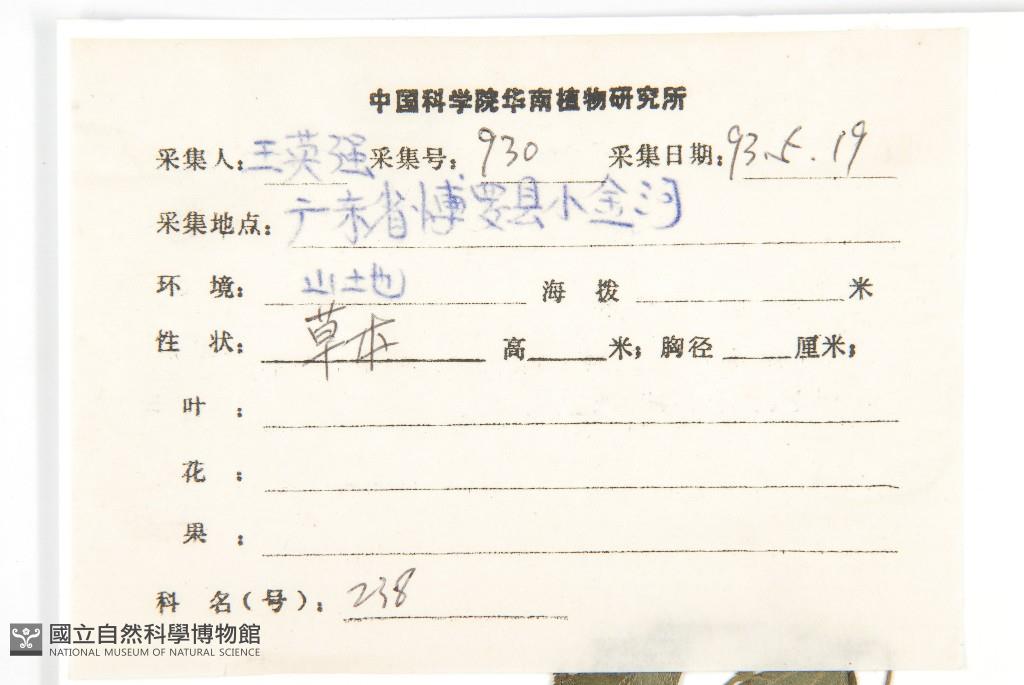 中国科学院华南植物研究所
采集人：王英强 采集号：930 采集日期：93.5.19
采集地点：广东省博罗县小金河
环 境：山土也 海 拨 米
性 状：草本 高 米；胸径 厘米；
叶 ：
花 ：
果 ：
科 名（号）：238
國立自然科學博物館
NATIONAL MUSEUM OF NATURAL SCIENCE